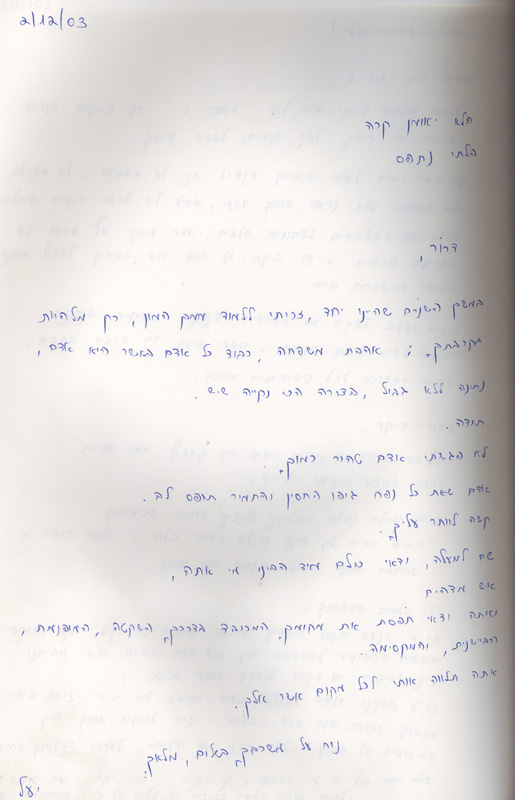 2/12/03
הלא יאומן קרה
הלתי נתפס
דרור,
במשך השנים שהיינו יחד, זכיתי ללמוד ממך המון, רק מלהיות
בקרבתך; אהבת משפחה, כבוד כל אדם באשר הוא אדם,
נתינה ללא גבול, בצורה הכי נקייה שיש.
תודה.
לא פגשתי אדם טהור כמוך.
אדם שאת כל נפח גופו החסין והתמיר תופס לב.
קשה לוותר עליך.
שם למעלה, ודאי כולם מיד הבינו מי אתה,
איש מדהים
ואתה ודאי תפסת את מקומך, המכובד בדרכך השקטה, הצופנת,
הביישנית, והמקסימה.
אתה תלווה אותי לכל מקום אשר אלך.
נוח על משכבך בשלום, מלאך.
יעל